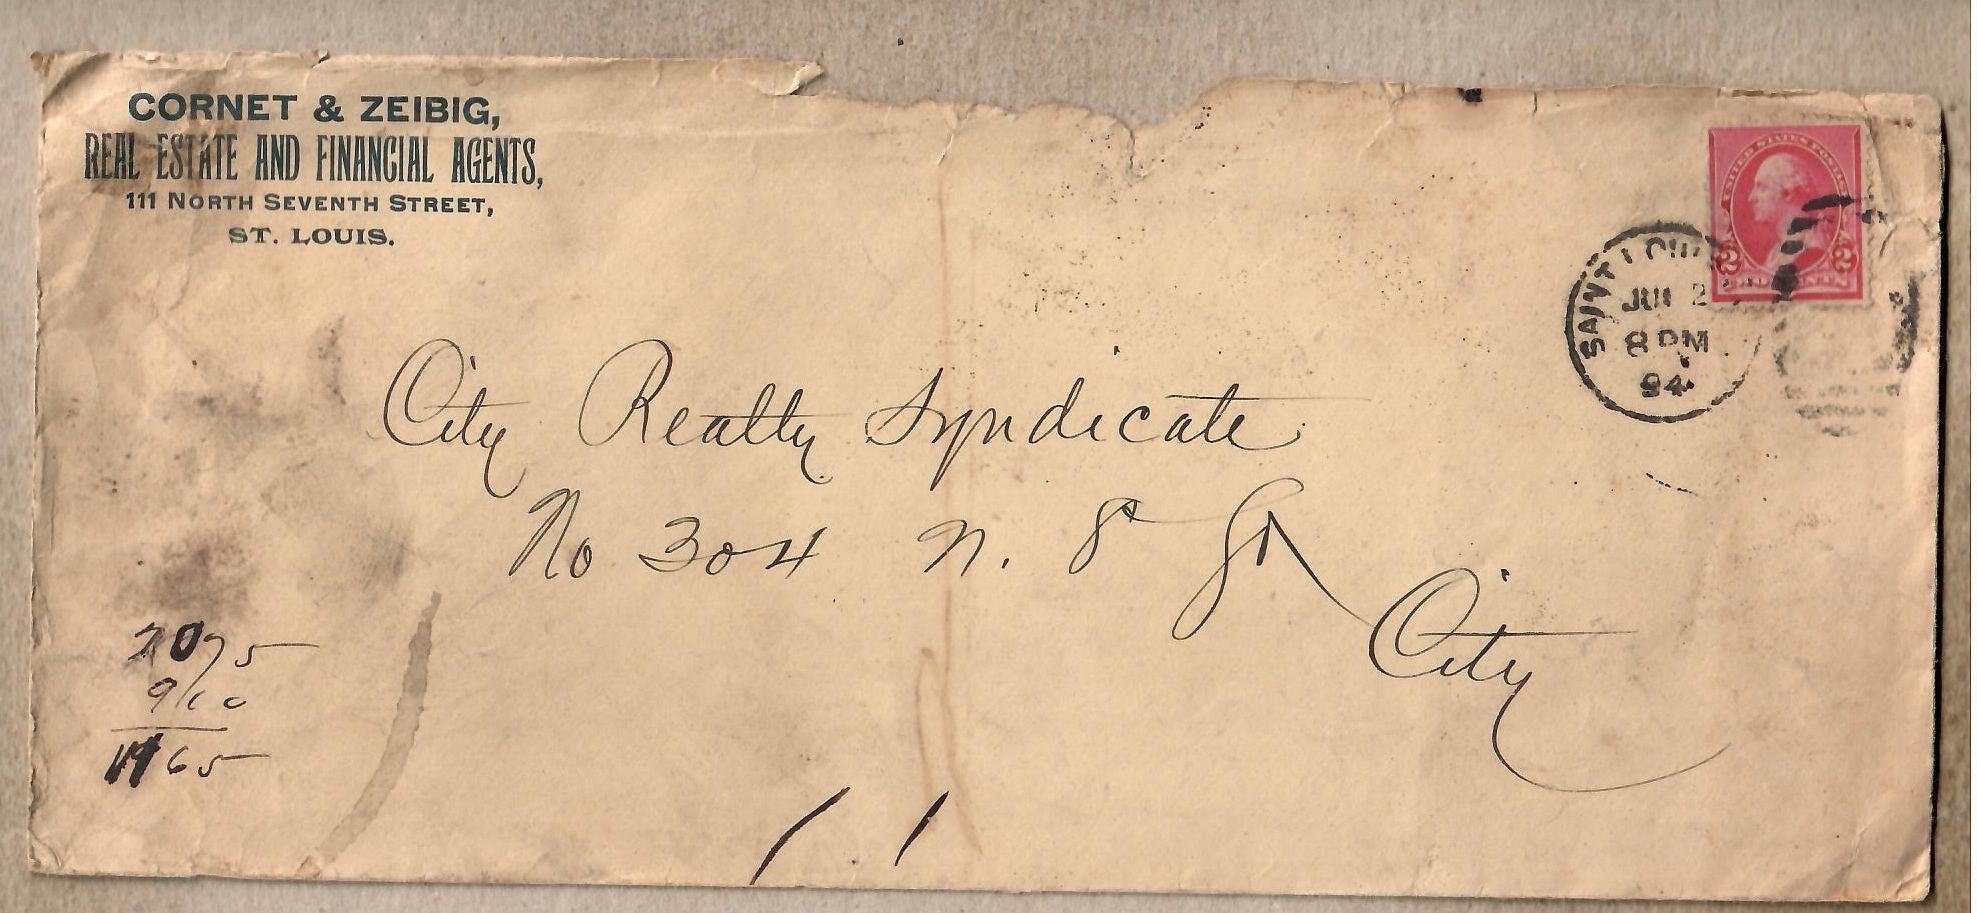 CORNET & ZEIBIG,
REAL ESTATE AND FINANCIAL AGENTS,
111 NORTH SEVENTH STREET,
ST. LOUIS.
UNITED STATES POSTAGE
2 2
SAINT LOUIS
2
8 PM
94
City Realty Syndicate
No 304 N. 8th St
City
2075
910
1165